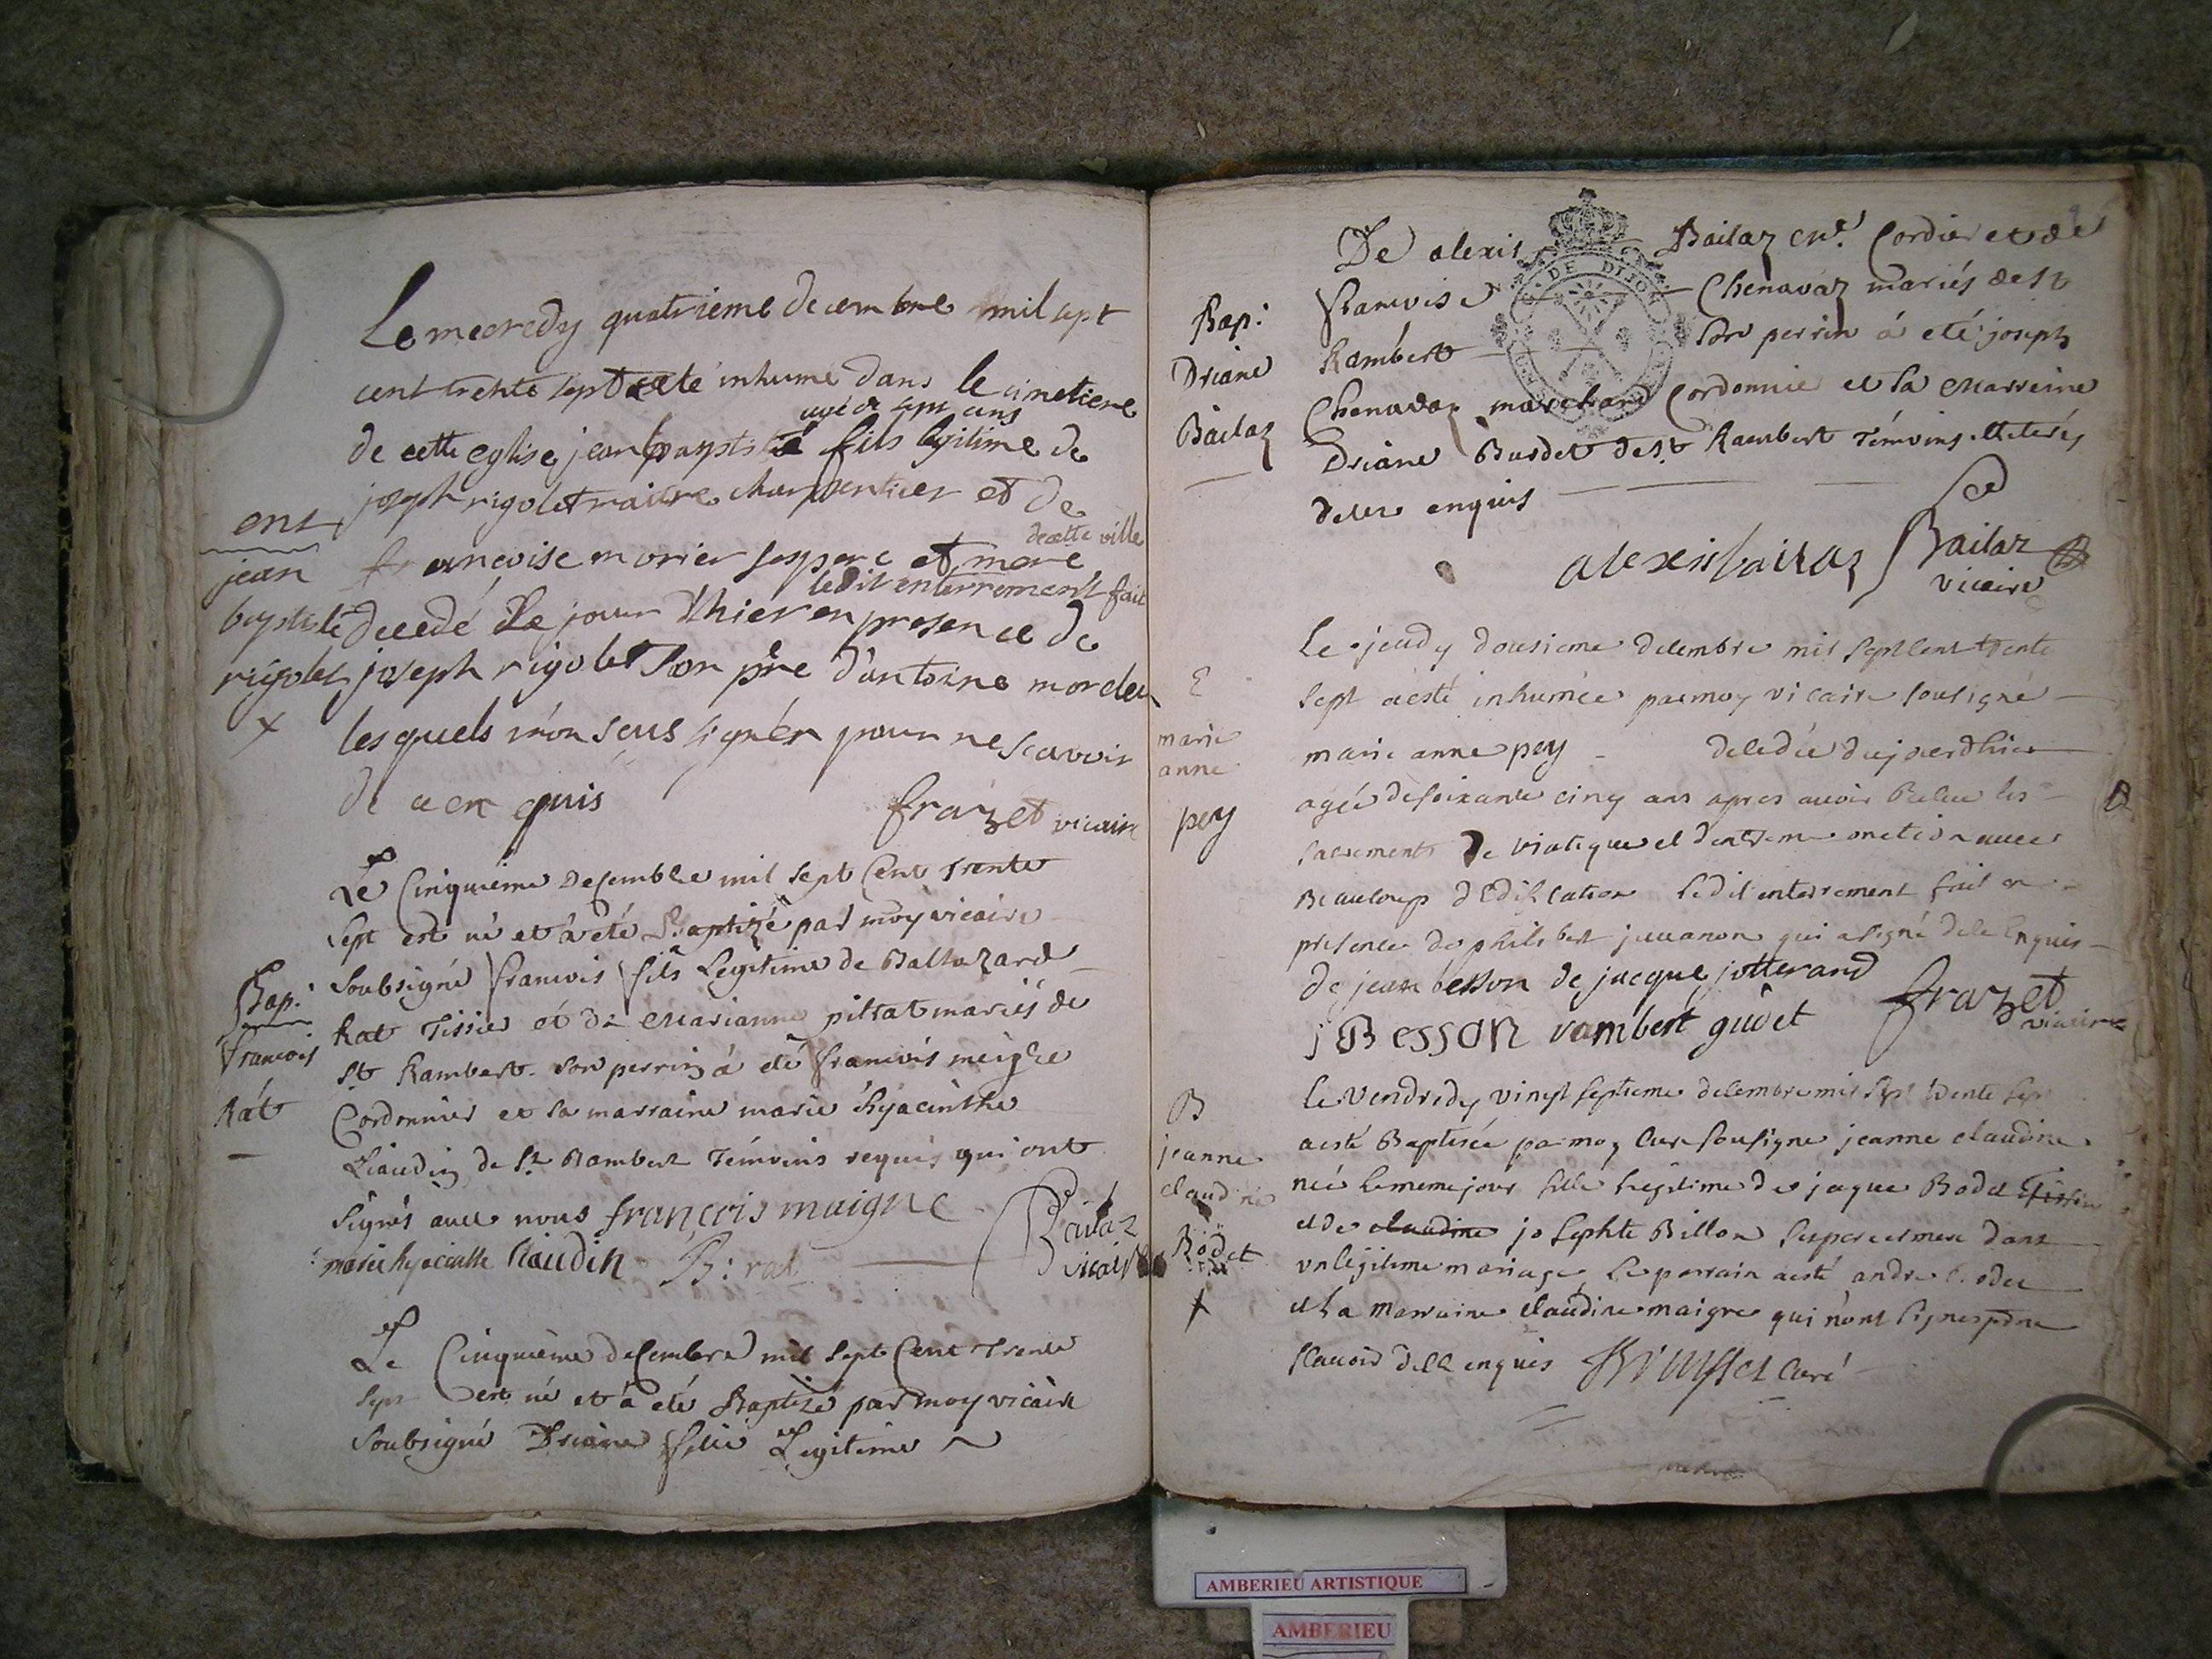 Le mecredy quatrieme decembre mil sept
cent trente sept a eté inhumé dans le cimetiere
agé de sept ans
de cette eglise jean baptiste fils legitime de
joseph rigolet maitre charpentier et de
de cette ville
francoise morier ses pere et mere
ledit enterrement fait
decedé le jour d'hier en presence de
joseph rigolet son pere d'antoine mordeu
lesquels n'ont sous signér pour ne scavoir
de ce en quis
frazet vicaire
ent
jean
baptiste
rigolet
x
Le Cinquieme decembre mil sept Cent trente
sept est né et à eté Baptizé par moy vicaire
soubsigné francois fils Legitime de Baltazard
Rat Tissier et de Marianne pittat mariés de
St Rambert. son perrin à eté francois meigre
Cordonnier et sa marraine marie hyacinthe
Liaudin de St Rambert Témoins requis qui ont
signés avec nous françois maigre
marie hyacinthe liaudin B: rat
Bailaz
vicaire
Bap:
francois
Rat
Le Cinquième decembre mil sept Cent Trente
sept est né et à eté Baptizé par moy vicaire
soubsigné Driane fille Legitime
De alexis Bailaz Cordier et de
francoise Chenavaz mariés de St
Rambert son perrin à eté joseph
Chenavaz marchand Cordonnie et sa Marreine
Driane Burdet de St Rambert Témoins
de ce enquis
alexis bailaz
Bailaz
vicaire
Bap:
Driane
Bailaz
DE DIJON
Le jeudy dousieme decembre mil sept cent trente
sept a esté inhumée par moy vicaire sousigné
marie anne pey decedée du jourdhier
agée de soixante cinq ans apres avoir Receu les
sacrements de viatique et d'extreme onction avec
Beaucoup d'Edification ledit enterrement fait en
presence de philibert juvanon qui a signé de ce Enquis
de jean besson de jacque jotterand
j Besson rambert gudet frazet
vicaire
E
marie
anne
pey
le vendredy vingt septieme decembre mil sept trente sept
a esté Baptisée par moy Curé sousigne jeanne claudine
née le meme jour fille legitime de jaque Bodet
et de claudine josephte Billon ses pere et mere dans
un legitime mariage, Le parrain a esté andre bodet
et la marraine claudine maigre qui n'ont signes pour ne
scavoir de ce enquis Curé
B
jeanne
claudine
Bodet
x
AMBERIEU ARTISTIQUE
AMBERIEU